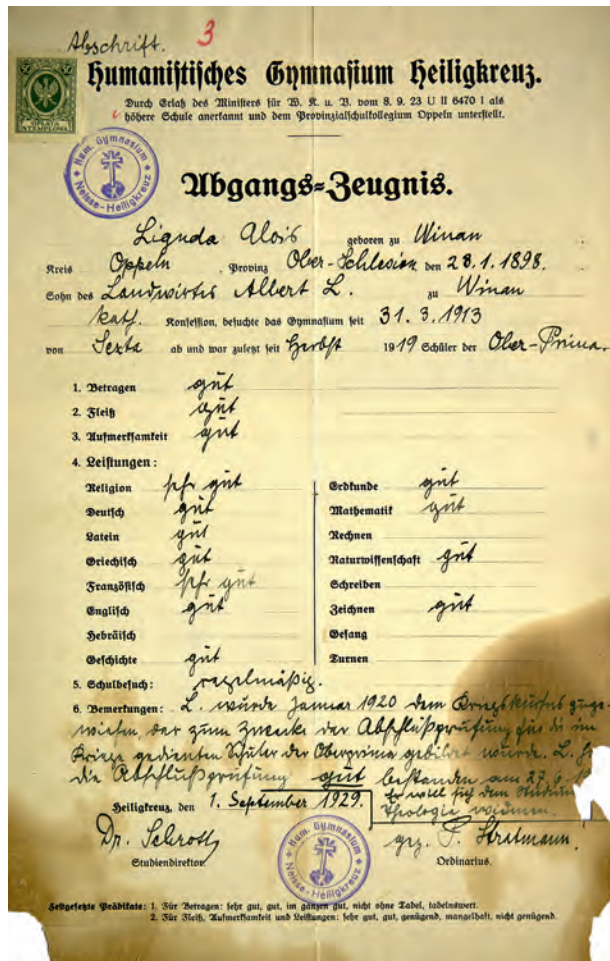 Abschrift. 3
Humanistisches Gymnasium Heiligkreuz.
Durch Erlaß des Ministers für W. K. u. V. vom 8. 9. 23 U II 6470 1 als
höhere Schule anerkannt und dem Provinzialschulkollegium Oppeln unterstellt.
50 50
OPŁATA STEMPLOWA
Hum. Gymnasium Neisse-Heiligkreuz
Abgangs-Zeugnis.
Liguda Alois geboren zu Winau
Kreis Oppeln, Provinz Ober-Schlesien, den 23.1.1898.
Sohn des Landwirtes Albert L. zu Winau
kath. Konfession, besuchte das Gymnasium seit 31. 3. 1913
von Sexta ab und war zuletzt seit Herbst 1919 Schüler der Ober-Prima.
1. Betragen gut
2. Fleiß gut
3. Aufmerksamkeit gut
4. Leistungen:
Religion sehr gut
Deutsch gut
Latein gut
Griechisch gut
Französisch sehr gut
Englisch gut
Hebräisch
Geschichte gut
Erdkunde gut
Mathematik gut
Rechnen
Naturwissenschaft gut
Schreiben
Zeichnen gut
Gesang
Turnen
5. Schulbesuch: regelmäßig.
6. Bemerkungen: L. wurde Januar 1920 dem Kriegskursus zuge-
wiesen, der zum Zwecke der Abschlußprüfung für die im
Kriege gedienten Schüler der Oberprima gebildet wurde. L. h
die Abschlußprüfung gut bestanden am 27. 6.
Er will sich dem Studium
Theologie widmen.
Heiligkreuz, den 1. September 1929.
Dr. Schrott gez. P. Stratmann.
Studiendirektor Ordinarius.
Hum. Gymnasium Neisse-Heiligkreuz
Festgesetzte Prädikate: 1. Für Betragen: sehr gut, gut, im ganzen gut, nicht ohne Tadel, tadelnswert.
2. Für Fleiß, Aufmerksamkeit und Leistungen: sehr gut, gut, genügend, mangelhaft, nicht genügend.